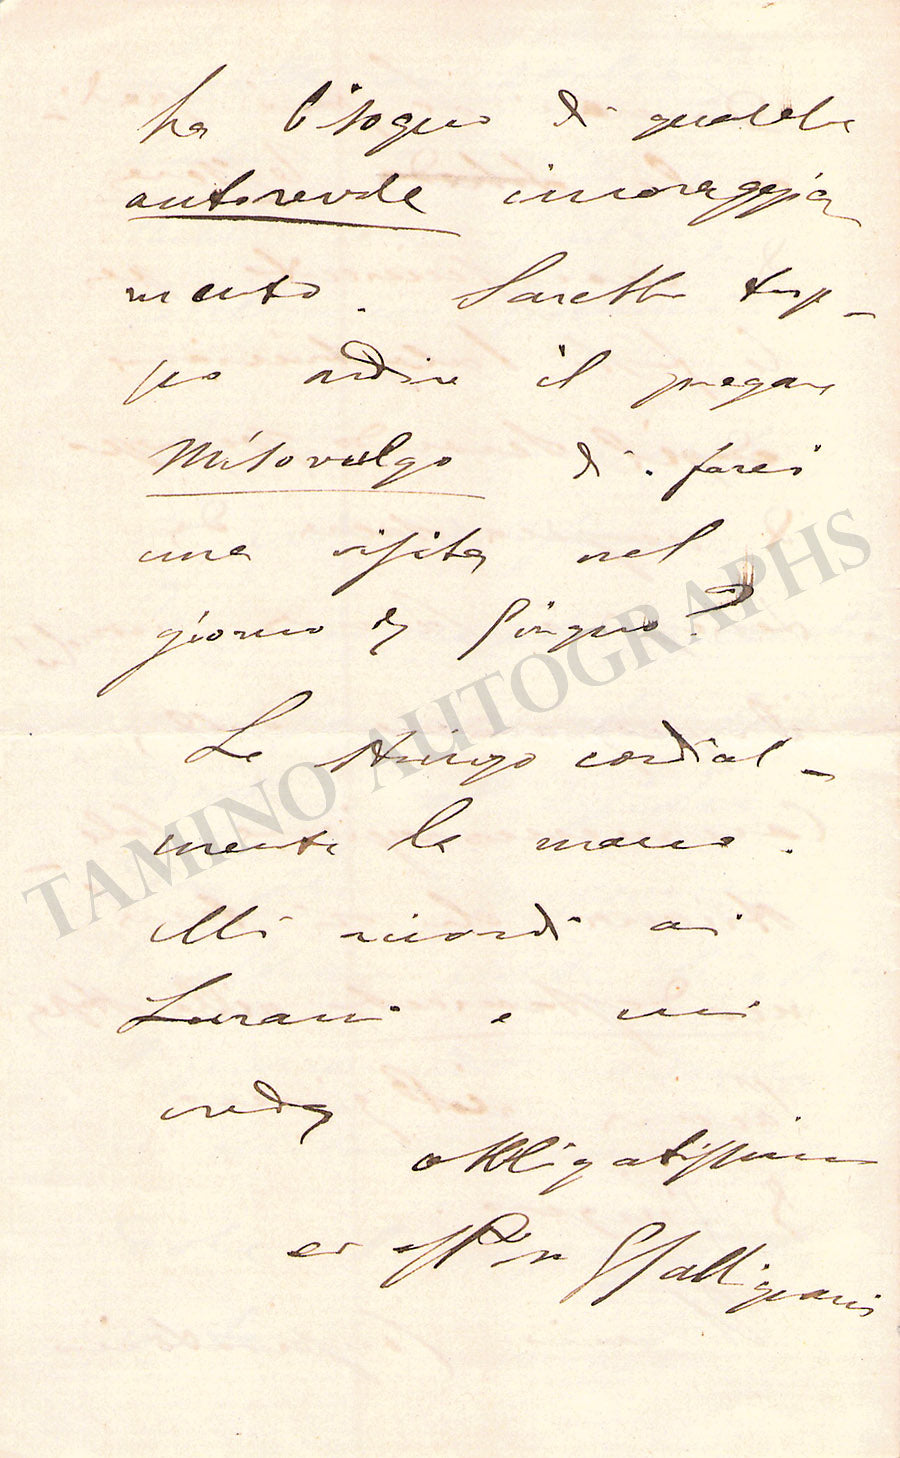 ha bisogno di qualche
autorevole incoraggia
mento. Sarebbe trop-
po ardire il pregare
Misovulgo di farci
una visita nel
giorno di Giugno?
Le stringo cordial-
mente la mano.
Mi ricordi ai
Lurani e mi
creda
obbligatissimo
ed aff GGallignani
TAMINO AUTOGRAPHS